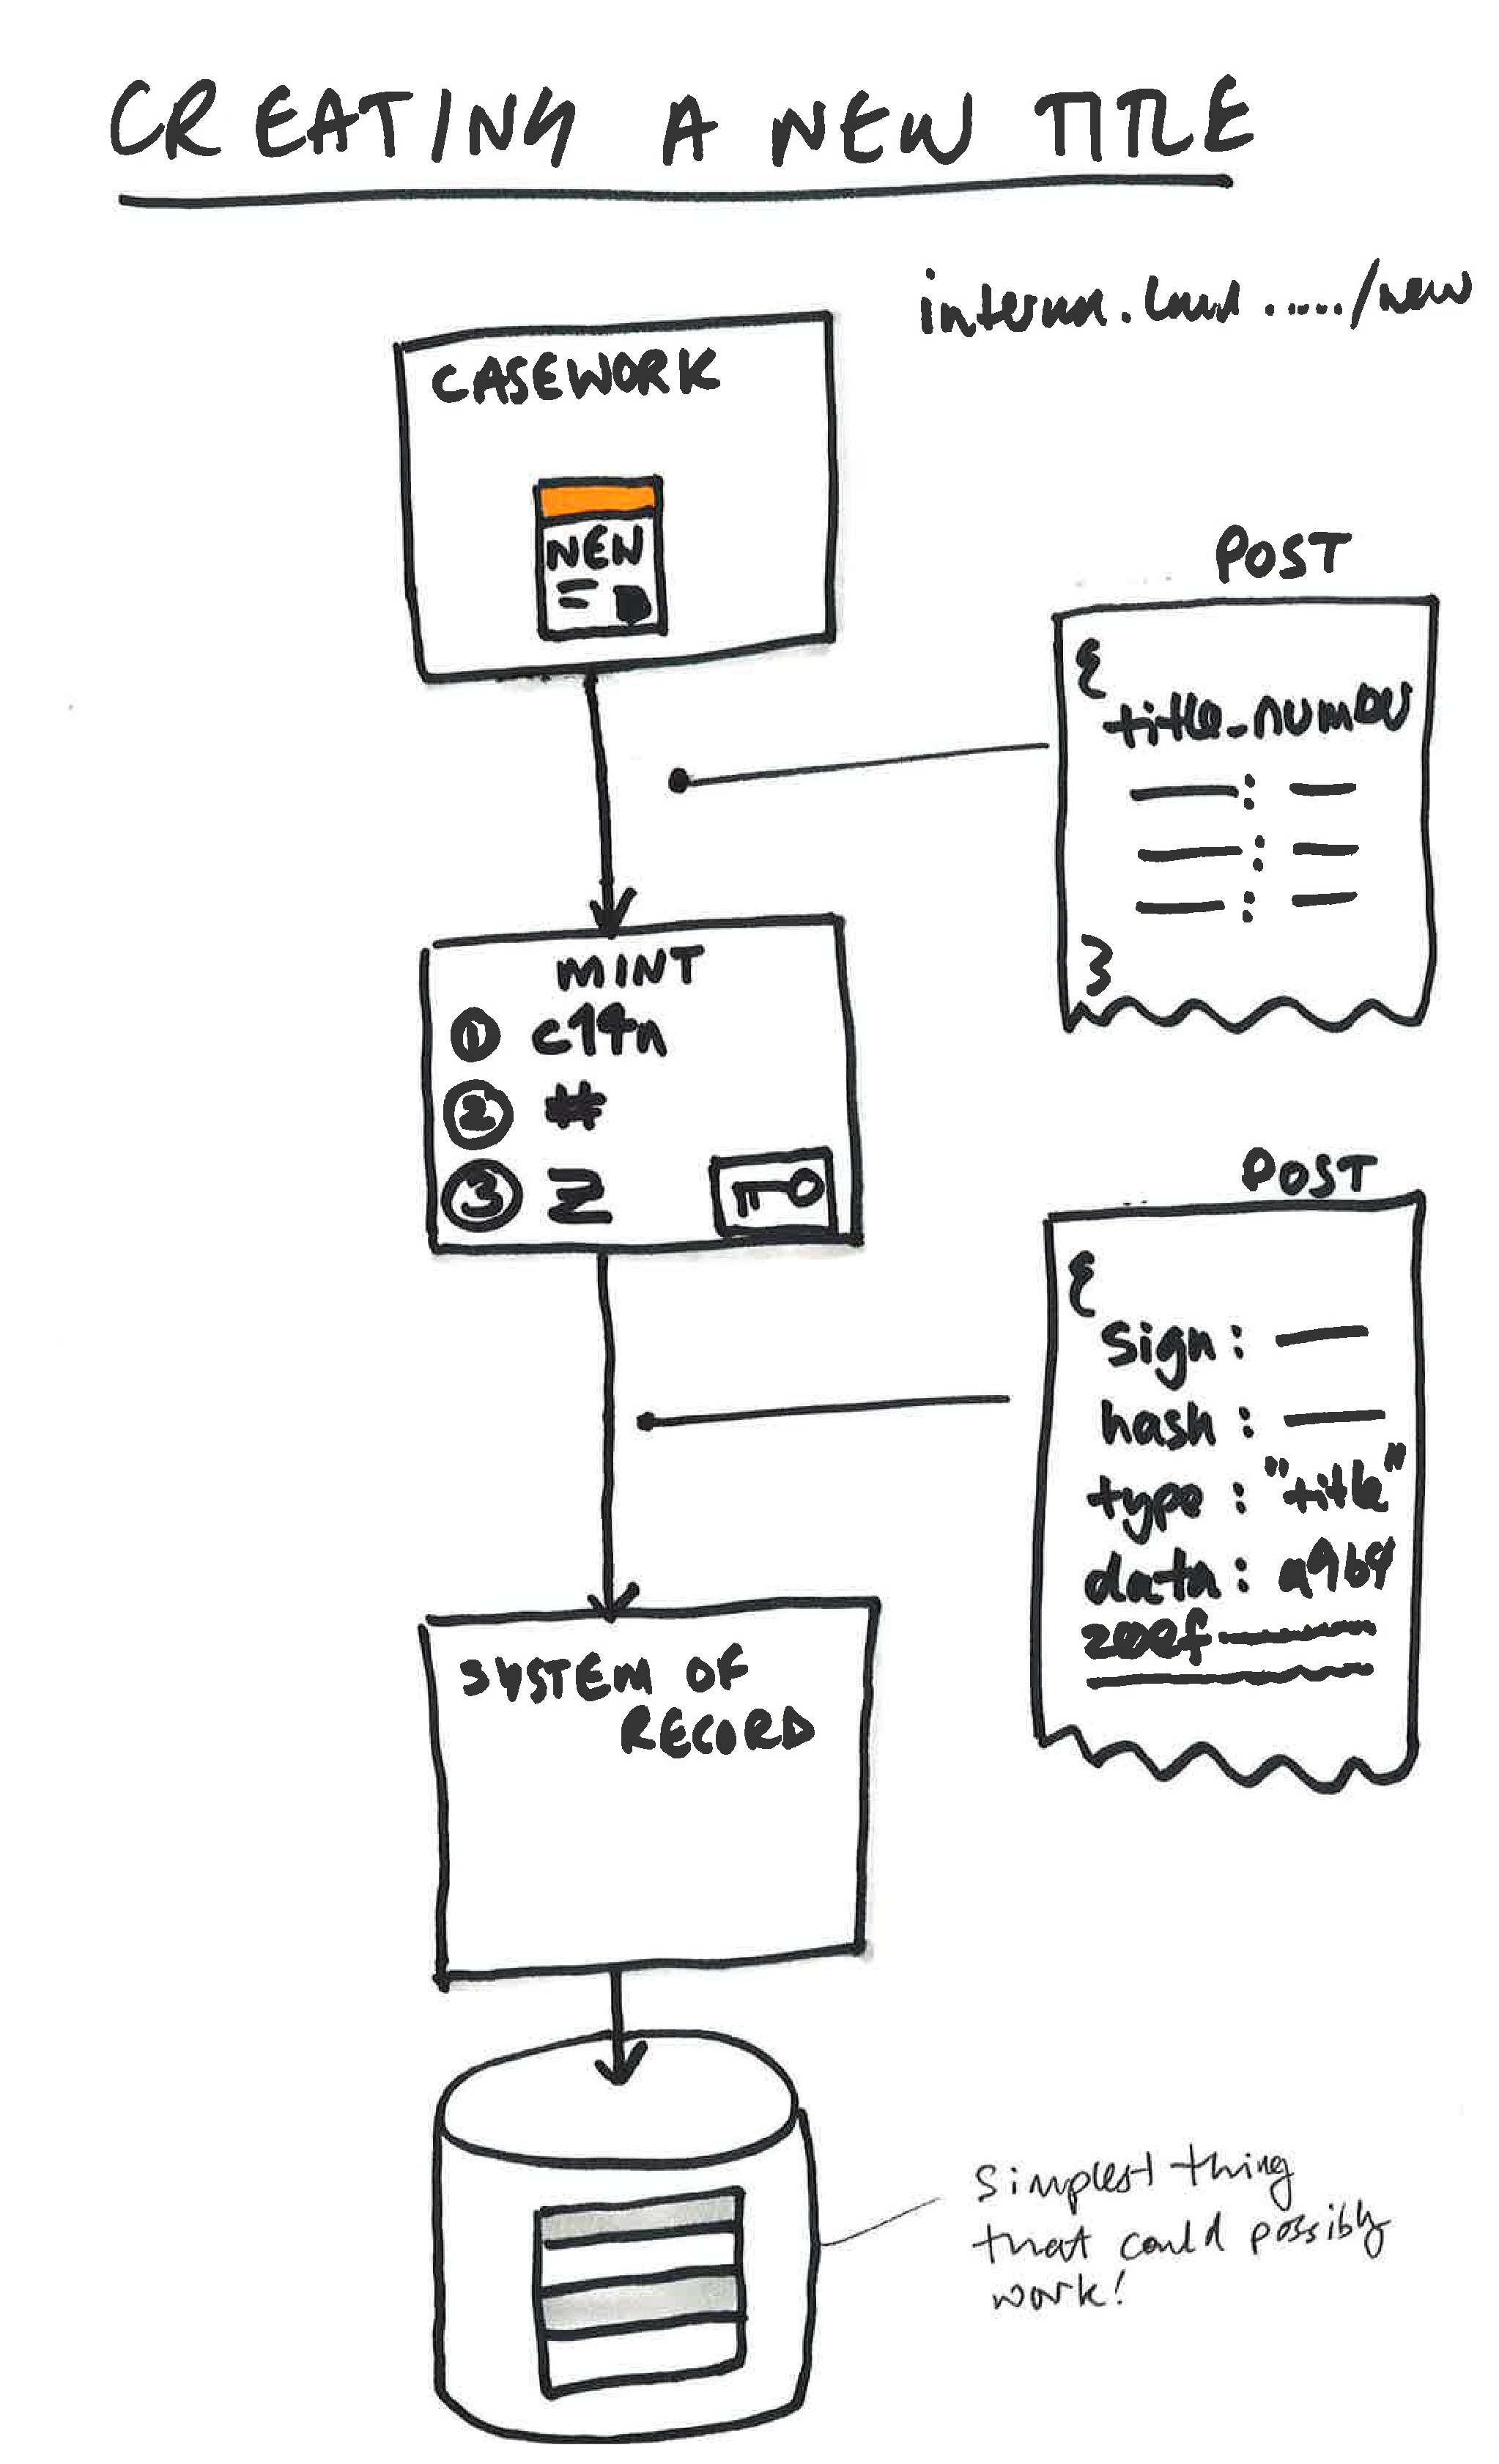 CREATING A NEW TITLE
internal.land ...../new
CASEWORK
NEW
POST
{
title_number
:
:
:
}
MINT
1 c14n
2 #
3 Z
POST
{
sign:
hash:
type: "title"
data: a9b4
200ef
SYSTEM OF
RECORD
simplest thing
that could possibly
work!